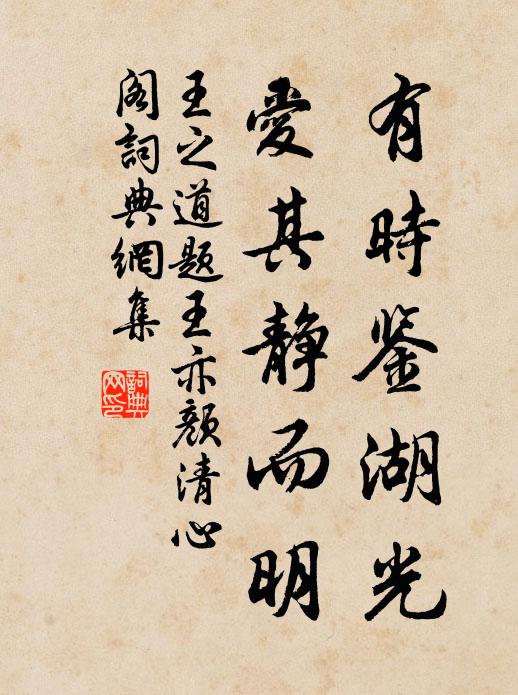 有時鉴湖光
愛其静而明
王之道题王亦顏清心
阁詞典網集
詞典网印